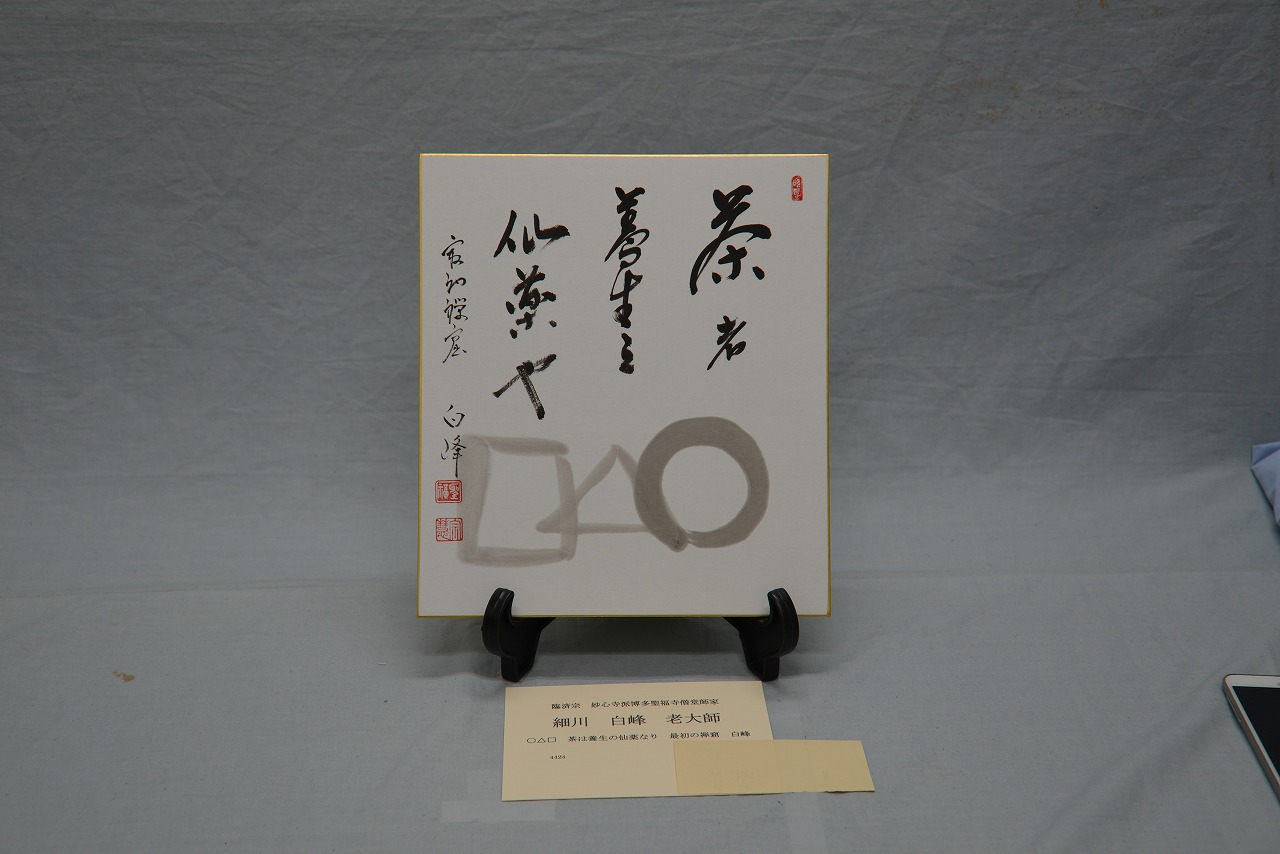 茶者
養生之
仙薬也
最初禅窟 白峰
臨済宗 妙心寺派博多聖福寺僧堂師家
細川 白峰 老大師
○△□ 茶は養生の仙薬なり 最初の禅窟 白峰
4424